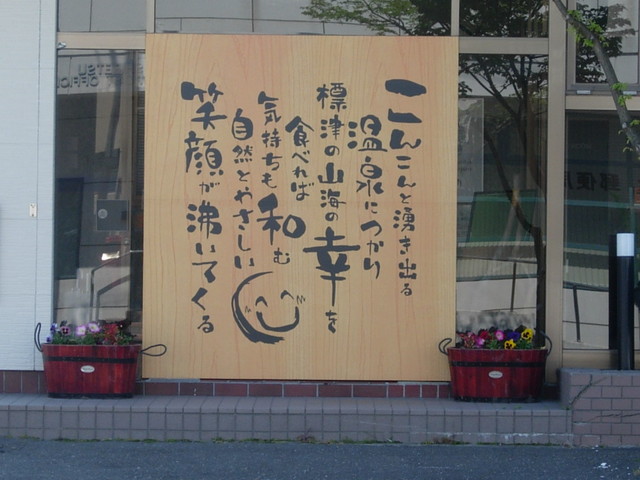 こんこんと湧き出る
温泉につかり
標津の山海の幸を
食べれば
気持ちも和む
自然とやさしい
笑顔が沸いてくる
郵便局